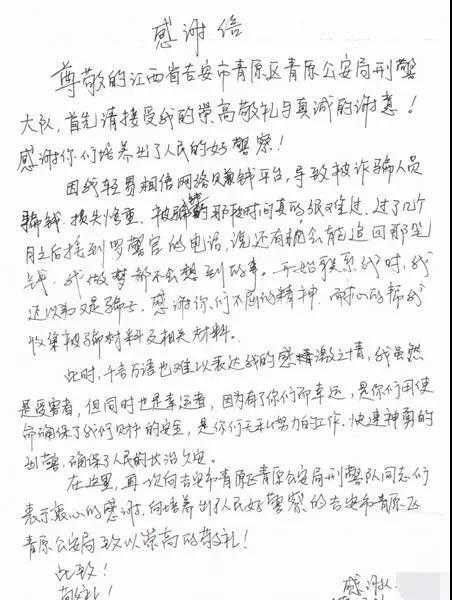 感谢信
尊敬的江西省吉安市青原区青原公安局刑警
大队,首先请接受我的崇高敬礼与真诚的谢意!
感谢你们培养出了人民的好警察!
因我轻易相信网络赚钱平台,导致被诈骗人员
骗钱,损失惨重,被骗的那段时间真的很难过,过了几个
月之后接到罗警官的电话,说还有机会能追回那笔
钱,我做梦都不会想到的事。开始联系我时,我
还以为又是骗子,感谢你们不屈的精神,耐心的帮我
收集被骗材料及相关材料。
此时,千言万语也难以表达我的感激之情,我虽然
是受害者,但同时也是幸运者,因为有了你们而幸运,是你们用使
命确保了我们财产的安全,是你们无私努力的工作,快速神勇的
出警,确保了人民的长治久安。
在这里,再一次向吉安市青原区青原公安局刑警队同志们
表示衷心的感谢,向培养出了人民好警察的吉安市青原区
青原公安局致以崇高的敬礼!
此致!
敬礼!
感谢人: